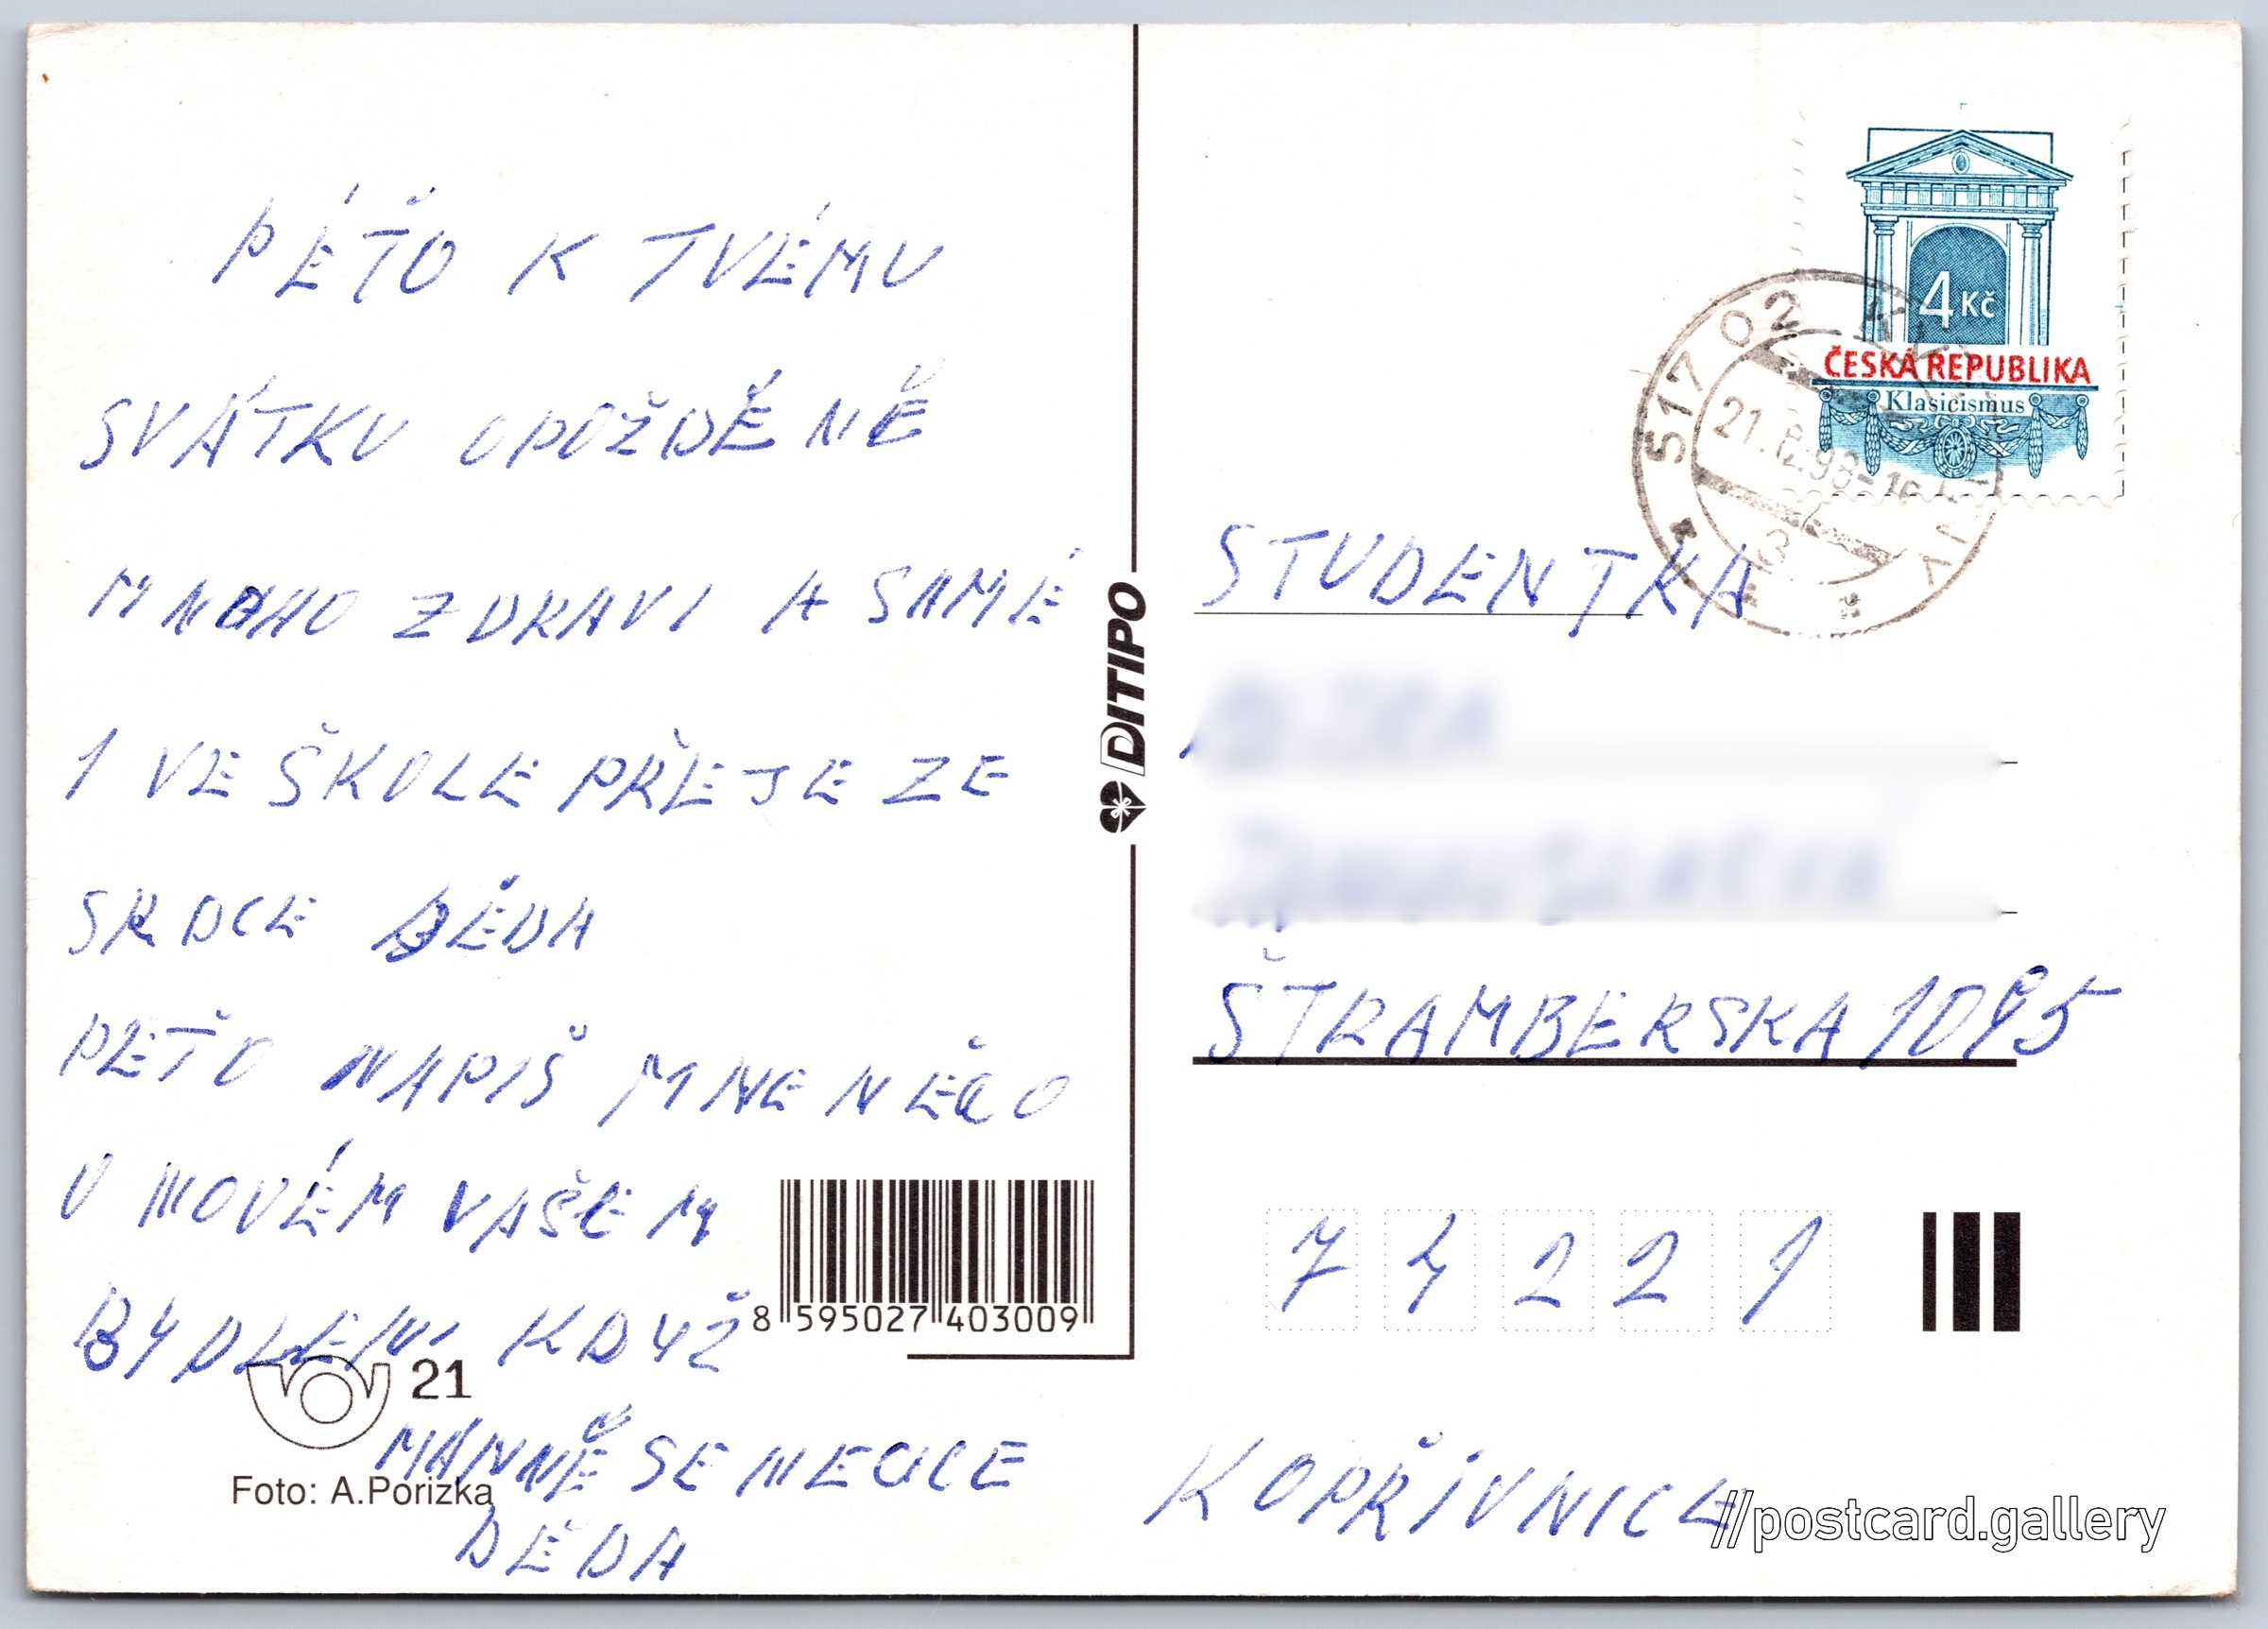 PÉŤO K TVÉMU
SVÁTKU OPOŽDĚNĚ
MNOHO ZDRAVI A SAMÉ
1 VE ŠKOLE PŘEJE ZE
SRDCE DĚDA
PEŤO NAPIŠ MNE NĚCO
O NOVÉM VAŠEM
BYDLENI KDYŽ
MÁNNĚ SE NECHCE
DĚDA
21
Foto: A.Porizka
8 595027 403009
DITIPO
4 Kč
ČESKÁ REPUBLIKA
Klasicismus
517 02
21.12.98-16
STUDENTKA
ŠTRAMBERSKA 1095
74221
KOPŘIVNICE
//postcard.gallery